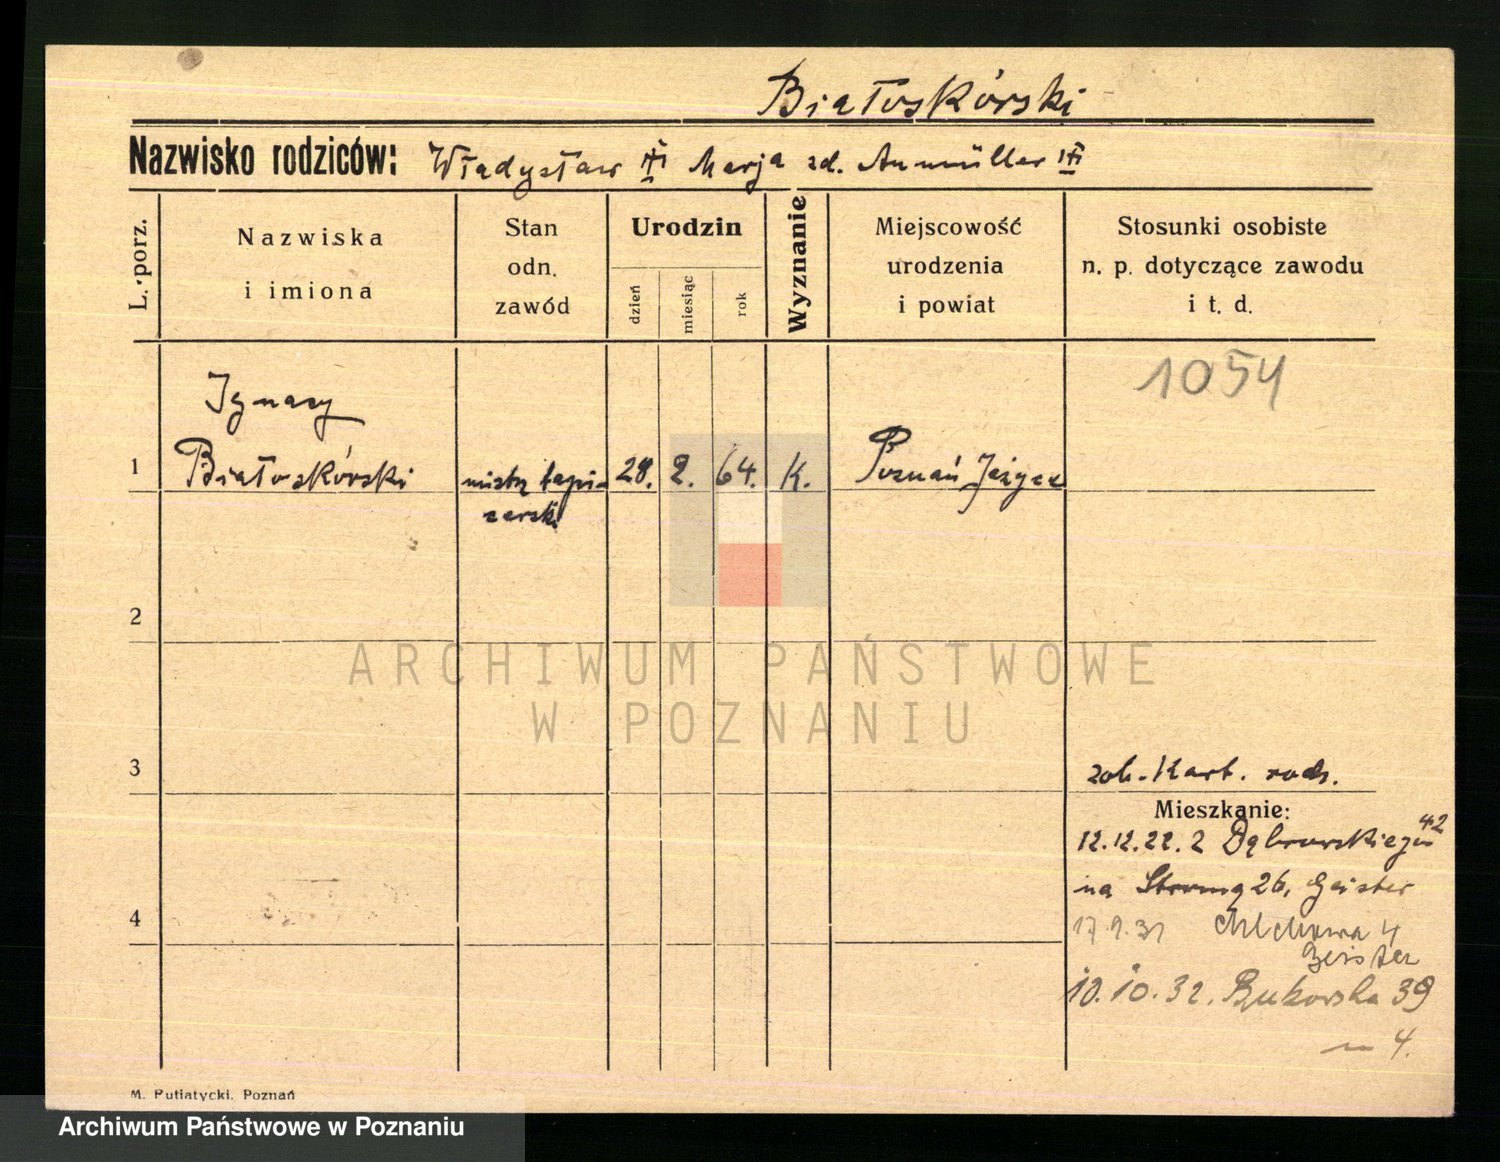 Białoskórski
Nazwisko rodziców: Władysław Marja zd. Aumüller
L. porz.
Nazwiska
i imiona
Stan
odn.
zawód
Urodzin
dzień
miesiąc
rok
Wyznanie
Miejscowość
urodzenia
i powiat
Stosunki osobiste
n. p. dotyczące zawodu
i t. d.
1054
Ignacy
1 Białoskórski mistrz tapi- 28. 2. 64. K. Poznań Jeżyce
cerski
2
ARCHIWUM PAŃSTWOWE
W POZNANIU
3
zob. Kart. rodz.
Mieszkanie:
12.12.22. 2 Dąbrowskiego 42
na Stromą 26, Geister
4
17.9.31 4
Geister
10.10.32. Bukowska 39
4.
M. Putiatycki. Poznań
Archiwum Państwowe w Poznaniu